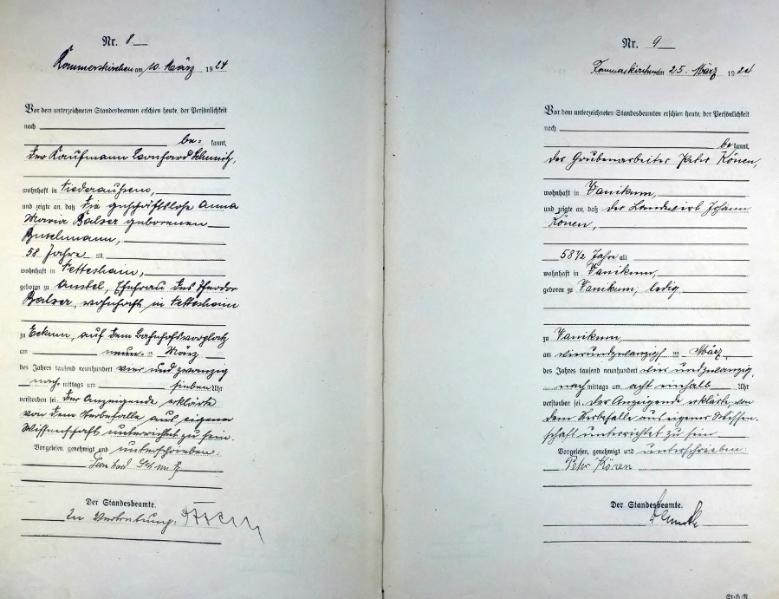 Nr. 8
Rommerskirchen am 10. März 1924
Vor dem unterzeichneten Standesbeamten erschien heute, der Persönlichkeit
nach
be= kannt,
der Kaufmann Leonhard Schmitz,
wohnhaft in Niederaußem,
und zeigte an, daß die geschäftslose Anna
Maria Balser geborenen
58 Jahre alt
wohnhaft in Nettesheim,
geboren zu Anstel, Ehefrau des Theodor
Balser, wohnhaft in Nettesheim
zu Eckum, auf dem Bahnhofsvorplatz
am neun. ten März
des Jahres tausend neunhundert vier und zwanzig
nach mittags um sieben Uhr
verstorben sei. Der Anzeigende erklärte
von dem Sterbefalle aus eigener
Wissenschaft unterrichtet zu sein.
Vorgelesen, genehmigt und unterschrieben.
Leonhard Schmitz
Der Standesbeamte.
In Vertretung.
Nr. 9
Rommerskirchen am 25. März 1924
Vor dem unterzeichneten Standesbeamten erschien heute, der Persönlichkeit
nach
be kannt,
der Grubenarbeiter Peter Könen,
wohnhaft in Vanikum,
und zeigte an, daß der Landwirt Johann
Könen,
58 1/2 Jahr alt
wohnhaft in Vanikum,
geboren zu Vanikum, ledig.
zu Vanikum,
am vierundzwanzigsten März
des Jahres tausend neunhundert vier undzwanzig,
nach mittags um acht einhalb Uhr
verstorben sei. Der Anzeigende erklärte, von
dem Sterbefalle aus eigener Wissen-
schaft unterrichtet zu sein
Vorgelesen, genehmigt und unterschrieben.
Peter Könen
Der Standesbeamte.